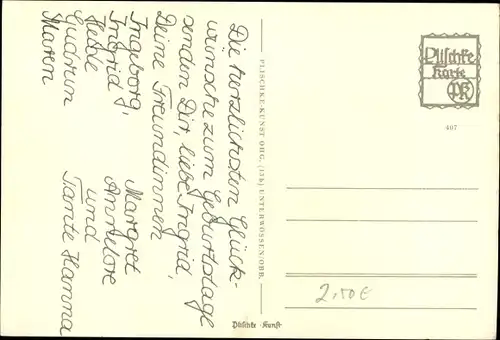 Die herzlichsten Glück-
wünsche zum Geburtstage
senden Dir, liebe Ingrid,
Deine Freundinnen
Ingeborg, Margret
Ingrid Annelore
Heide und
Gudrun Tante Hanna
Maren
PLISCHKE-KUNST OHG. (13b) UNTERWÖSSEN/OBB.
Plischke
Karte
PK
407
2,50€
Plischke-Kunst